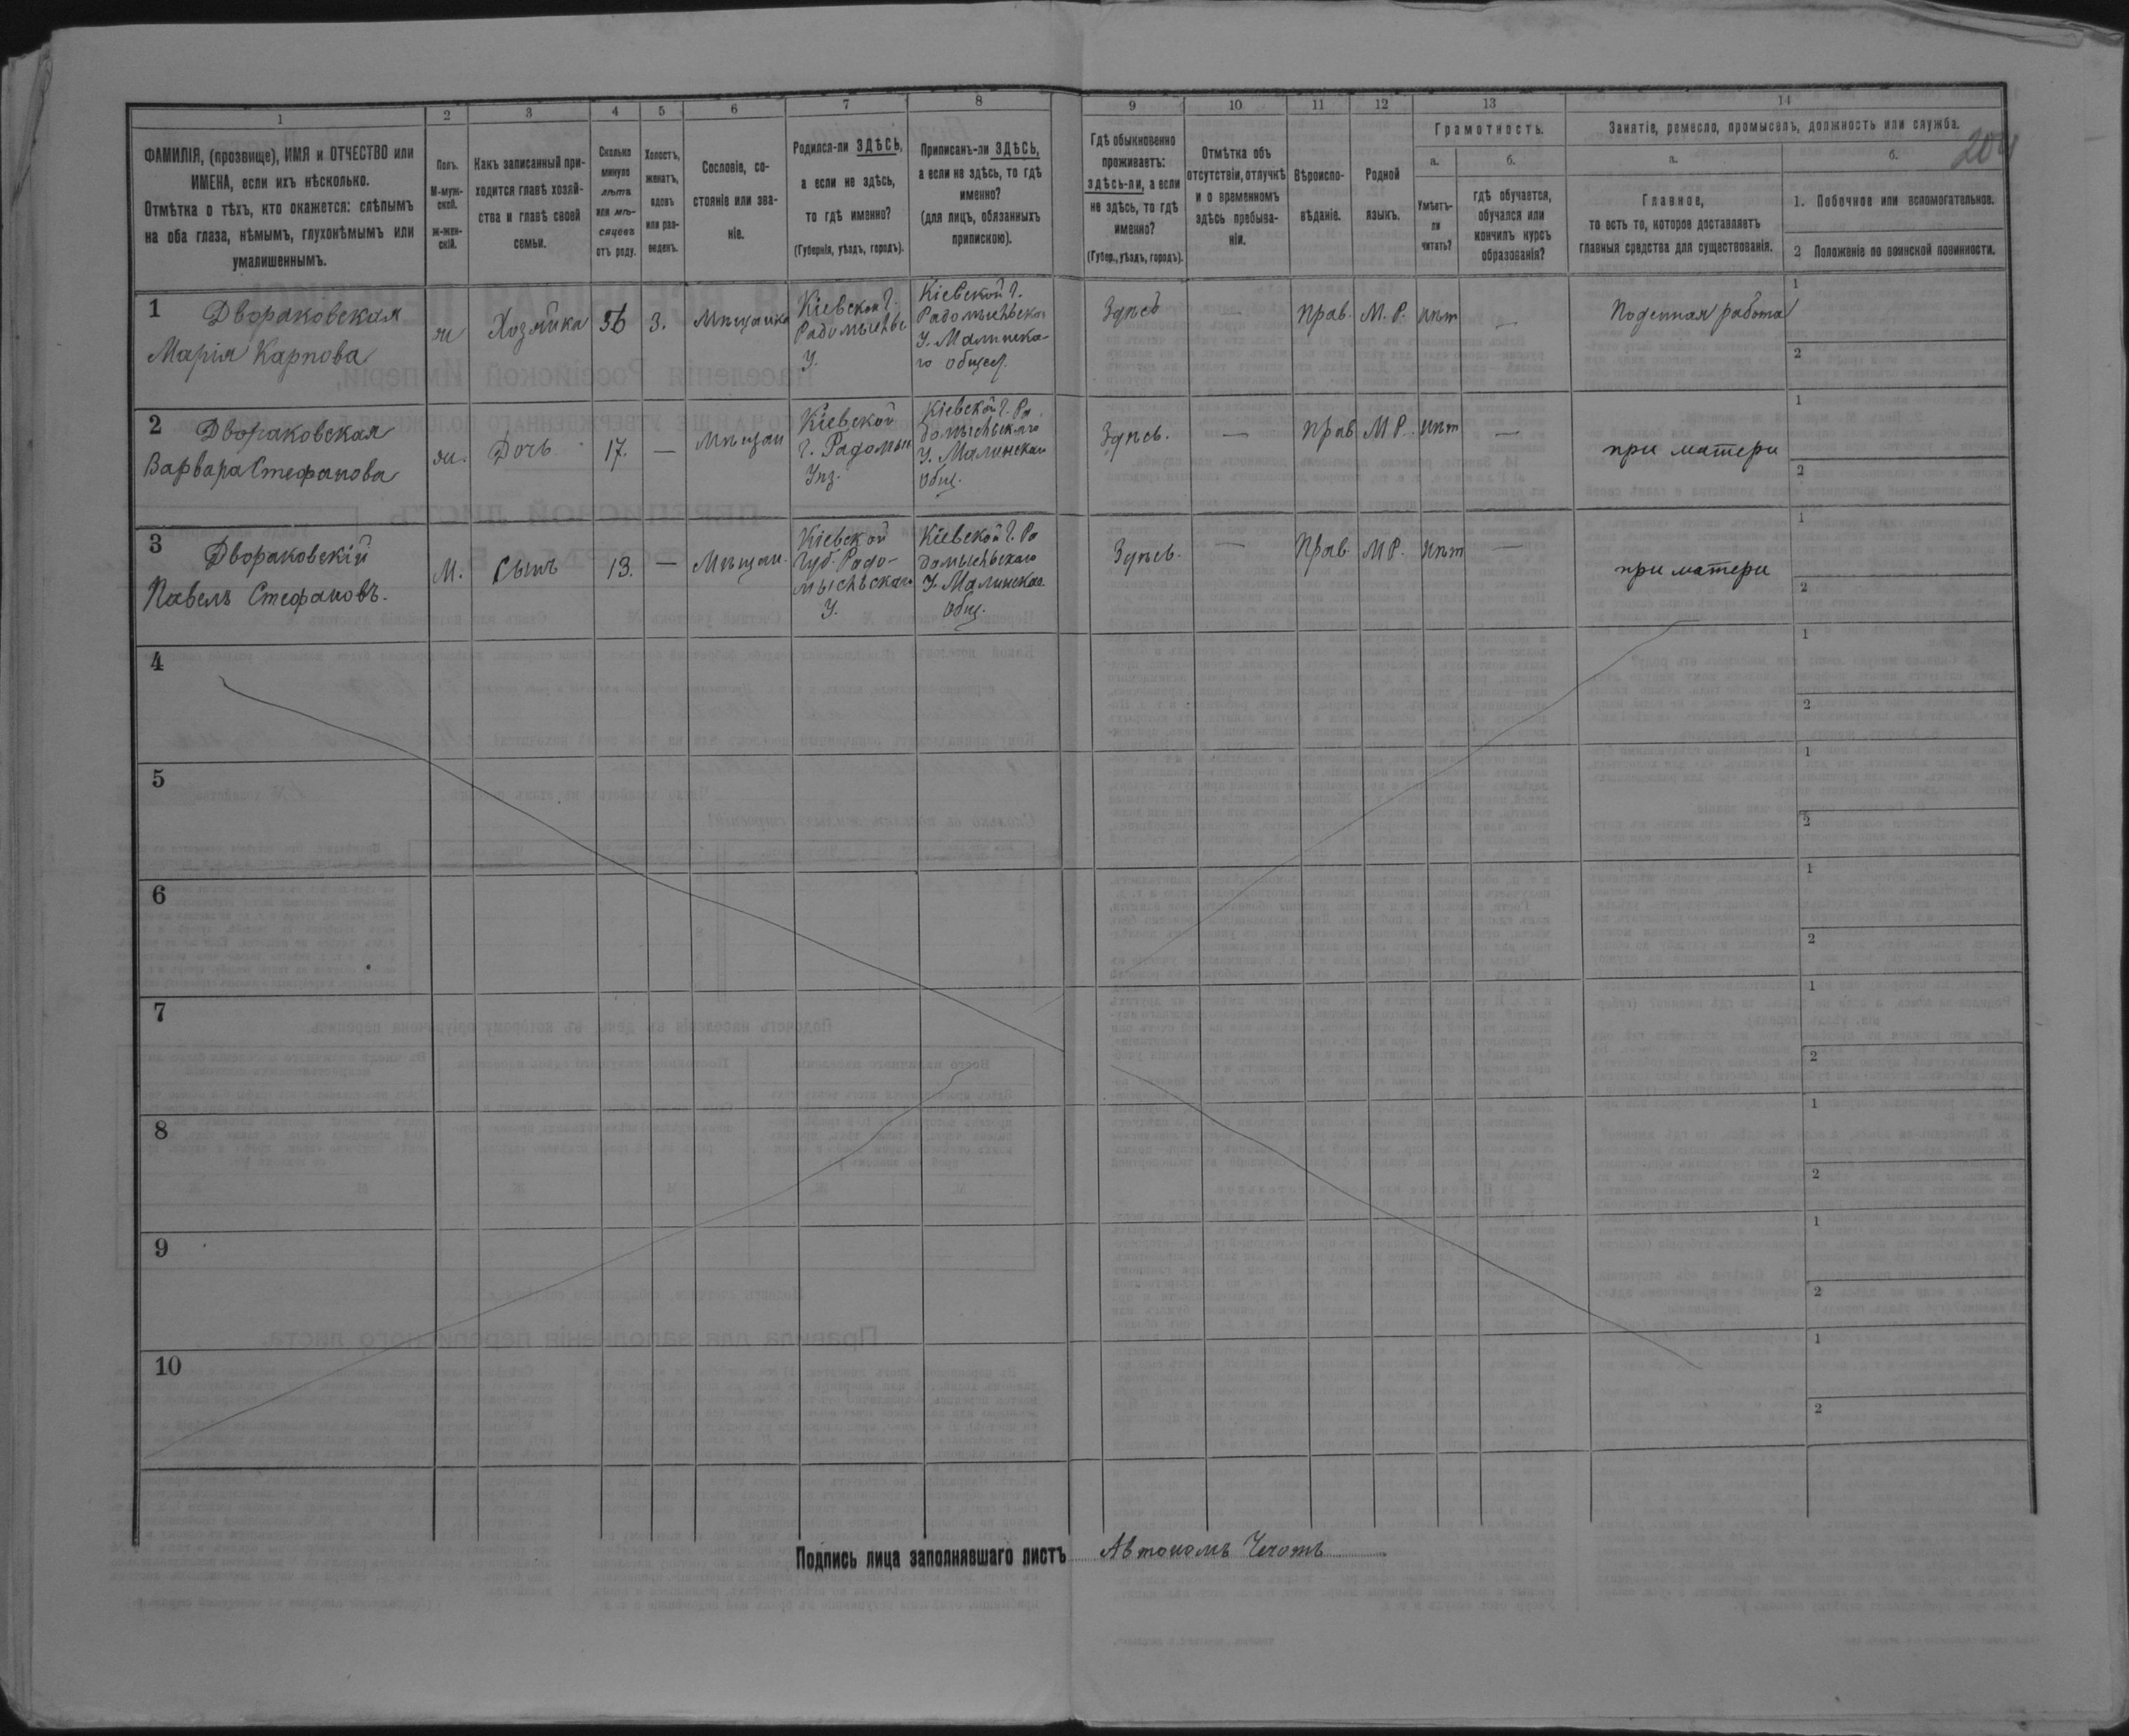 1
2
3
4
5
6
7
8
9
10
11
12
13
14
ФАМИЛІЯ, (прозвище), ИМЯ и ОТЧЕСТВО или
ИМЕНА, если ихъ нѣсколько.
Отмѣтка о тѣхъ, кто окажется: слѣпымъ
на оба глаза, нѣмымъ, глухонѣмымъ или
умалишеннымъ.
Полъ.
М-муж-
ской.
ж-жен-
скій.
Какъ записанный при-
ходится главѣ хозяй-
ства и главѣ своей
семьи.
Сколько
минуло
лѣтъ
или мѣ-
сяцевъ
отъ роду.
Холостъ,
женатъ,
вдовъ
или раз-
веденъ.
Сословіе, со-
стояніе или зва-
ніе.
Родился-ли ЗДѢСЬ,
а если не здѣсь,
то гдѣ именно?
(Губернія, уѣздъ, городъ).
Приписанъ-ли ЗДѢСЬ,
а если не здѣсь, то гдѣ
именно?
(для лицъ, обязанныхъ
припискою).
Гдѣ обыкновенно
проживаетъ:
здѣсь-ли, а если
не здѣсь, то гдѣ
именно?
(Губер., уѣздъ, городъ).
Отмѣтка объ
отсутствіи, отлучкѣ
и о временномъ
здѣсь пребыва-
ніи.
Вѣроиспо-
вѣданіе.
Родной
языкъ.
Грамотность.
а.
Умѣетъ-
ли
читать?
б.
гдѣ обучается,
обучался или
кончилъ курсъ
образованія?
Занятіе, ремесло, промыселъ, должность или служба.
204
а.
Главное,
то есть то, которое доставляетъ
главныя средства для существованія.
б.
1. Побочное или вспомогательное.
2 Положеніе по воинской повинности.
1 Двораковская
Марія Карпова
ж
Хозяйка
56
З.
Мѣщанка
Кіевской г.
Радомысльс
У.
Кіевской г.
Радомысльско
У. Малинска-
го общес.
Здѣсь
—
Прав.
М. Р.
Нѣт
—
Поденная работа
1
2
2 Двораковская
Варвара Стефанова
ж.
Дочь
17.
—
Мѣщан
Кіевской
г. Радомы
Уѣз.
Кіевской г. Ра
домысльскаго
У. Малинскаго
Общ.
Здѣсь.
—
Прав
М Р.
Нѣт
—
при матери
1
2
3 Двораковскій
Павелъ Стефановъ.
М.
Сынъ
13.
—
Мѣщан.
Кіевской
Губ. Радо-
мысльскаго
У.
Кіевской г. Ра
домысльскаго
У. Малинскаго
Общ.
Здѣсь.
—
Прав.
М Р.
Нѣт
—
при матери
1
2
4
1
2
5
1
2
6
1
2
7
1
2
8
1
2
9
1
2
10
1
2
Подпись лица заполнявшаго листъ Автономъ